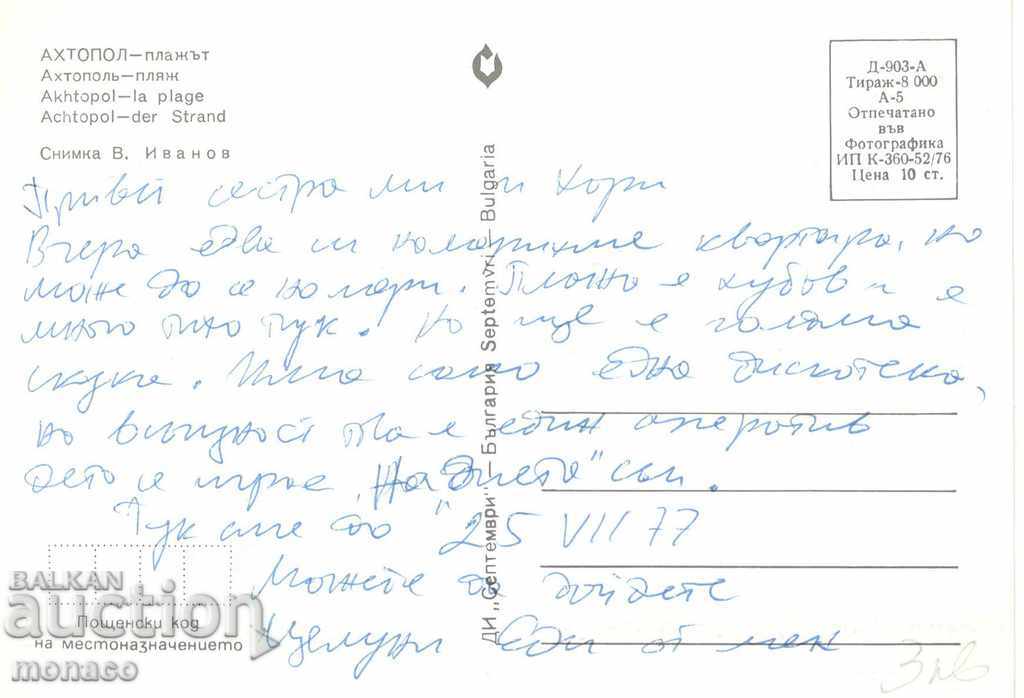 АХТОПОЛ—плажът
Ахтополь—пляж
Akhtopol—la plage
Achtopol—der Strand
Снимка В. Иванов
Д-903-А
Тираж-8 000
А-5
Отпечатано
във
Фотографика
ИП К-360-52/76
Цена 10 ст.
ДИ „Септември" — България Septemvri — Bulgaria
сестра ми и хори
Вчера едва си намерихме квартира, но
може да се намери. е хубав и е
много тихо тук. Но ще е голяма
скука. Има само една дискотека,
но всъщност това е един
дето се играе
Тук сме до 25 VII 77
Можете да дойдете
Целуни Еди от мен
Пощенски код
на местоназначението
BALKAN
auction
monaco
3 лв